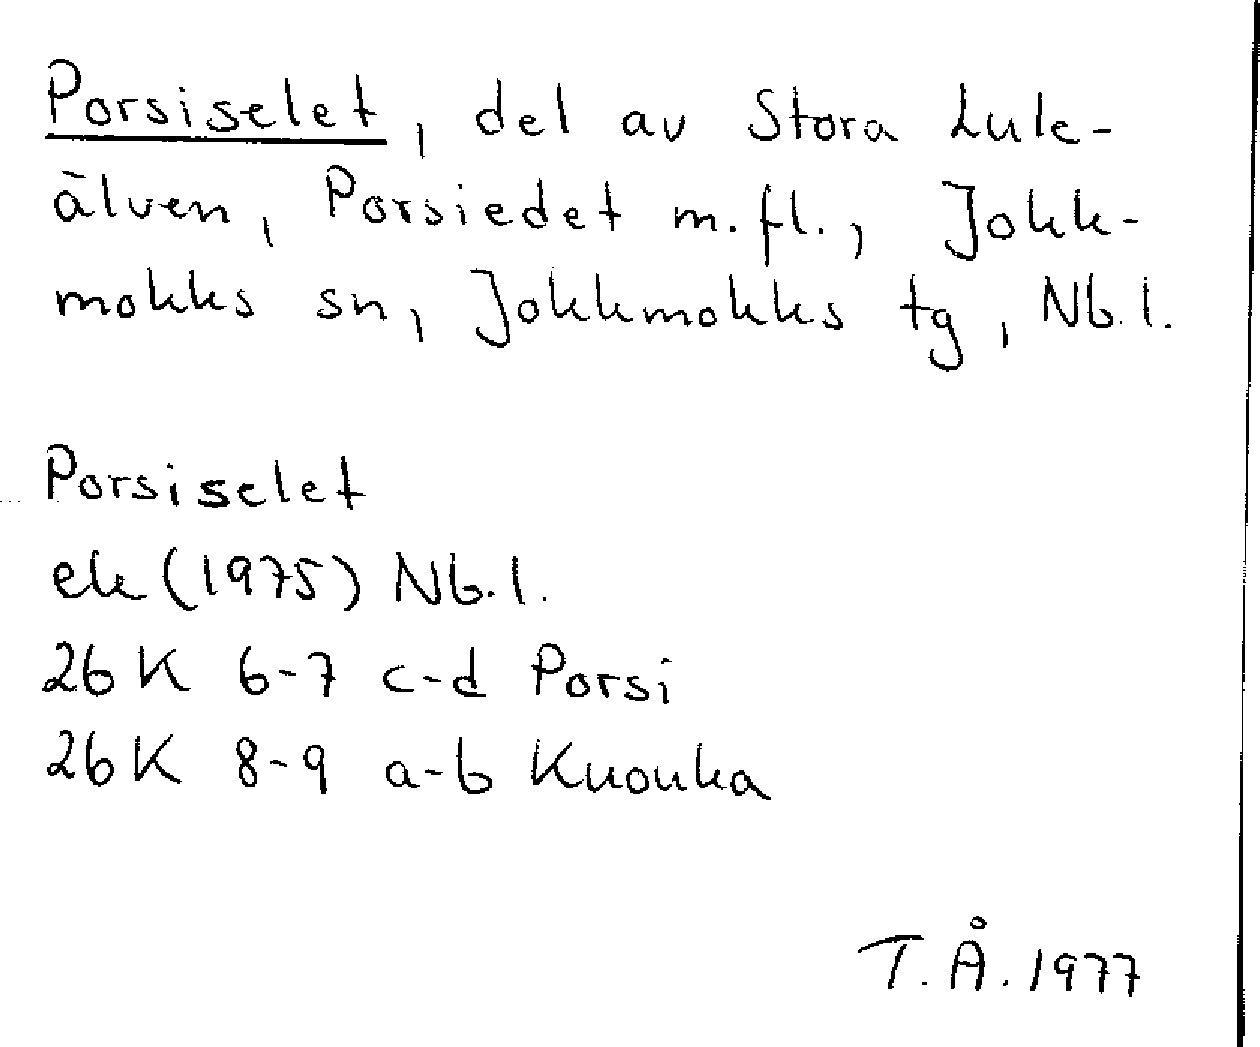 Porsiselet, del av Stora Lule-
älven, Porsiedet m.fl., Jokk-
mokks sn, Jokkmokks tg, Nb.l.
Porsiselet
ek (1975) Nb.l.
26K 6-7 c-d Porsi
26K 8-9 a-b Kuouka
T.Å. 1977